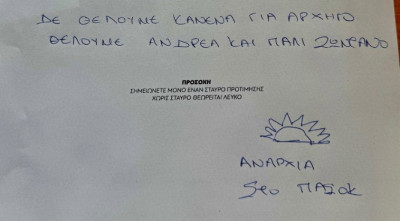 ΔΕ ΘΕΛΟΥΜΕ ΚΑΝΕΝΑ ΓΙΑ ΑΡΧΗΓΟ
ΘΕΛΟΥΜΕ ΑΝΔΡΕΑ ΚΑΙ ΠΑΛΙ ΖΩΝΤΑΝΟ
ΠΡΟΣΟΧΗ
ΣΗΜΕΙΩΝΕΤΕ ΜΟΝΟ ΕΝΑΝ ΣΤΑΥΡΟ ΠΡΟΤΙΜΗΣΗΣ
ΧΩΡΙΣ ΣΤΑΥΡΟ ΘΕΩΡΕΙΤΑΙ ΛΕΥΚΟ
ΑΝΑΡΧΙΑ
Στο ΠΑΣΟΚ